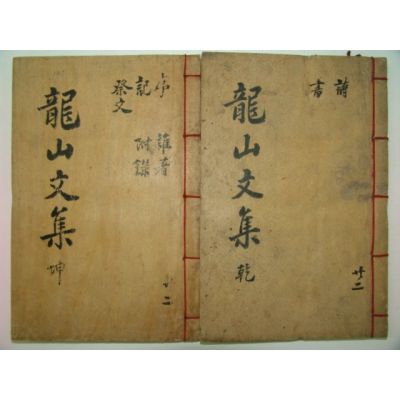 詩
書
龍山文集
乾
共二
序
記
祭文
雜著
附錄
龍山文集
坤
共二